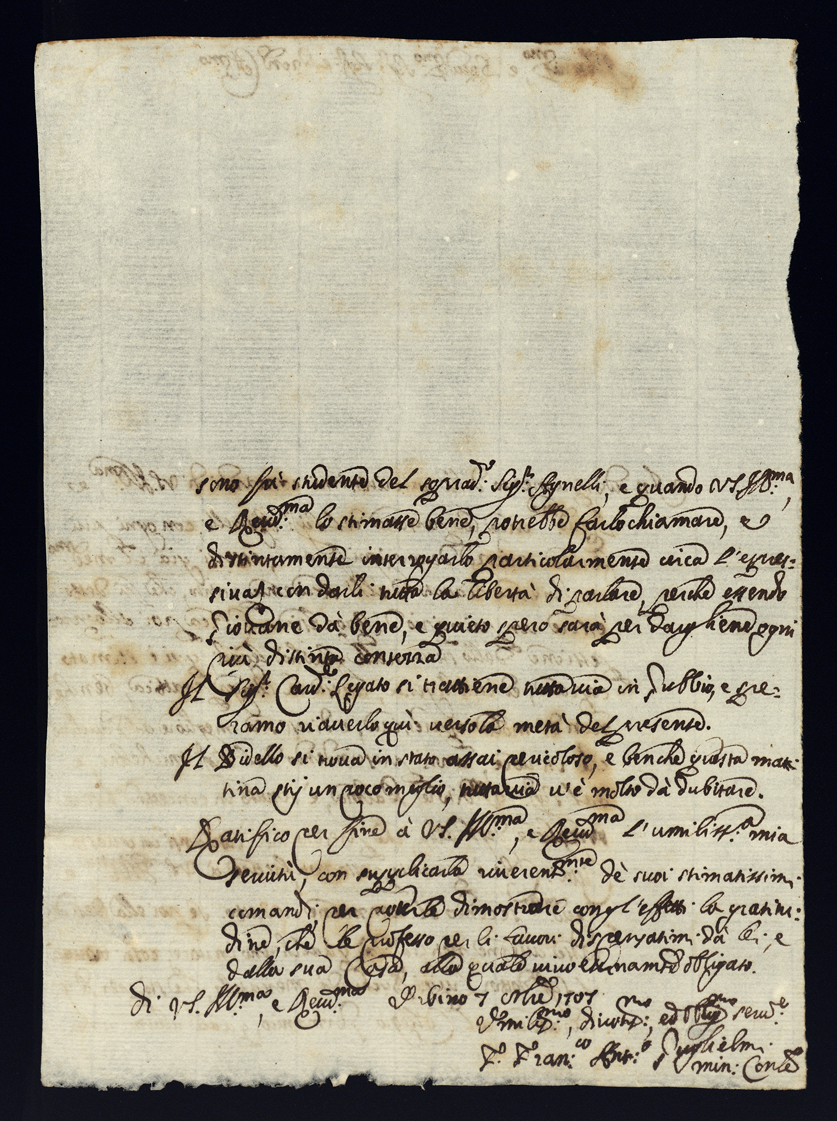 sono fù studente del soprad.º Sig.r Agnelli, e quando VS Ill.ma,
e Reud.ma lo stimasse bene, potrebbe farlo chiamare, e
distintamente interrogarlo particolarmente circa l'espres=
siva, con darli tutta la libertà di parlare, perche essendo
Giovane dà bene, e quieto, però sarà per dargliene ogni
più distinta contezza
Il Sig.r Card: Legato si trattiene tuttavia in Gubbio, e spe=
ramo riaverlo quì verso la metà del presente.
Il Bidello si trova in stato assai pericoloso, e benche questa mat=
tina stij un poco meglio, tuttavia v'è molto dà dubitare.
Ratifico per fine à VS. Ill.ma, e Reud.ma l'umiliss.a mia
servitù, con supplicarla riverent.mte dè suoi stimatissimi
comandi per poterle dimostrare con gl'effetti la gratitu=
dine, che le professo per li favori dispensatimi dà lei, e
dalla sua Casa, alla quale vivo eternam.te obligato.
di VS. Ill.ma, e Reud.ma Urbino 7 1707
Umiliss.mo, divotiss.mo, ed oblig.mo serv.e
F. Fran.co Ant.o Guglielmi
min: Con.le